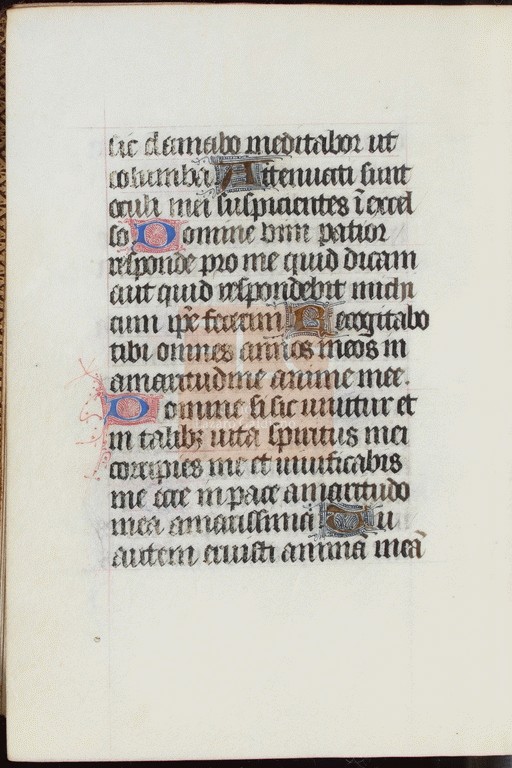 sic clamabo meditabor ut
columba. Attenuati sunt
oculi mei suspicientes ī excel
so Domine vim patior
responde pro me quid dicam
aut quid respondebit michi
cum ip̄e fecerim Recogitabo
tibi omnes annos meos in
amaritudine anime mee.
Domine si sic uiuitur et
in talibꝫ uita spiritus mei
corripies me et uiuificabis
me ecce in pace amaritudo
mea amarissima Tu
autem eruisti animā meā